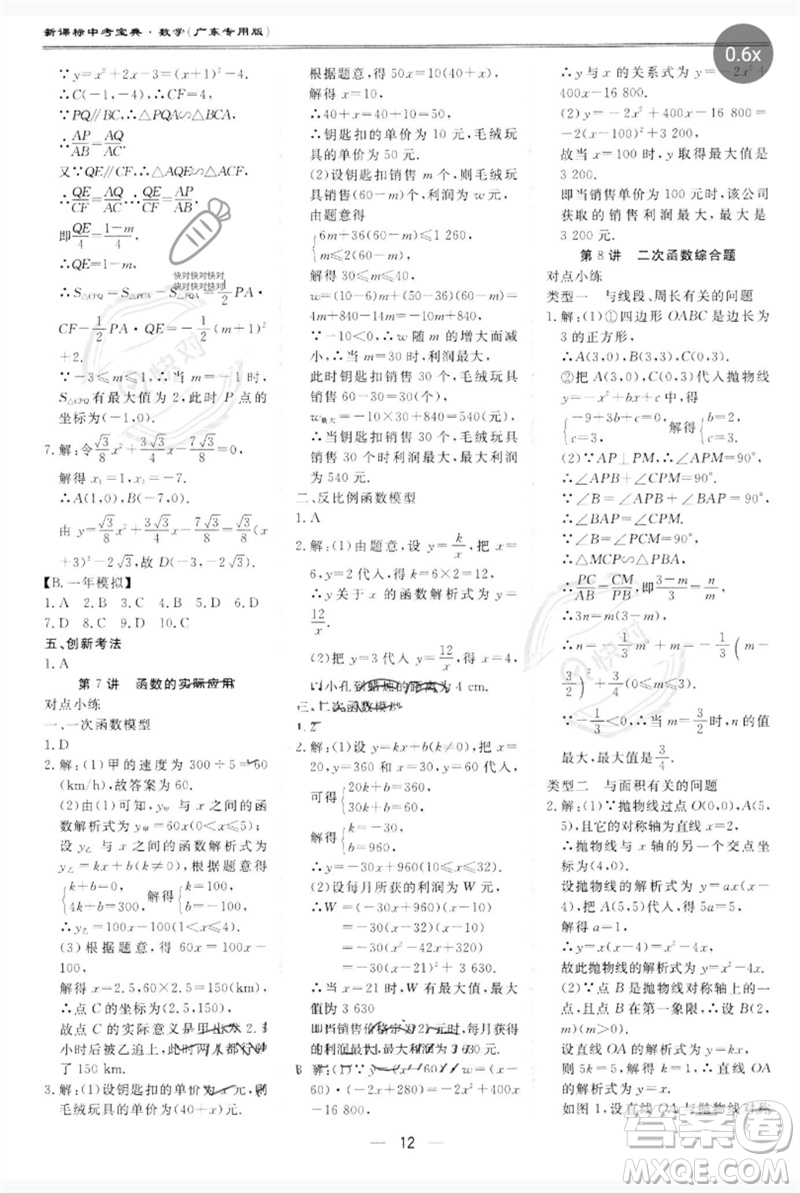 新课标中考宝典·数学(广东专用版)
0.6x
∵y=x²+2x−3=(x+1)²−4,
∴C(−1,−4),∴CF=4.
∵PQ∥BC,∴△APQ∽△BCA,
∴AP/AB=AQ/AC.
又∵QE∥CF,∴△AQE∽△ACF,
∴QE/CF=AQ/AC,∴QE/CF=AP/AB,
即QE/4=(1−m)/4.
∴QE=1−m.
∴S△CPQ=S△PCA−S△PQA=1/2PA·
CF−1/2PA·QE=−1/2(m+1)²
+2.
∵−3≤m≤1,∴当m=−1时,
S△CPQ有最大值为2,此时P点的
坐标为(−1,0).
7.解:令√3/8x²+3√3/4x−7√3/8=0,
解得x=1或x=−7.
∴A(1,0).
由y=√3/8x²+3√3/4x−7√3/8=√3/8(x
+3)²−2√3,故D(−3,−2√3).
【B.一年模拟】
1.A 2.B 3.C 4.B 5.D 6.D
7.D 8.D 9.C 10.C
五、创新考法
1.A
第7讲 函数的实际应用
对点小练
一、一次函数模型
1.D
2.解:(1)甲的速度为300÷5=60
(km/h),故答案为60.
(2)由(1)可知,y甲与x之间的函
数解析式为y甲=60x(0<x≤5).
设y乙与x之间的函数解析式为
y乙=kx+b,根据题意得
{k+b=0, 4k+b=300, 解得{k=100, b=−100.
∴y乙=100x−100(1≤x≤4).
(3)根据题意得60x=100x−100,
解得x=2.5,60×2.5=150(km),
∴点C的坐标为(2.5,150),
故点C的实际意义是甲出发2.5
小时后被乙追上,此时两人都行驶
了150 km.
3.解:(1)设钥匙扣的单价为x元,则
毛绒玩具的单价为(40+x)元.
根据题意,得6x+3(40+x)=210,
解得x=10,
∴40+x=40+10=50,
∴钥匙扣的单价为10元,毛绒玩
具的单价为50元.
(2)设钥匙扣销售m个,则毛绒玩
具销售(60−m)个,利润为w元,
由题意得
{10m+50(60−m)≤1 260,
60−m≤m,
解得m≥30,
w=(10−6)m+(50−36)(60−m)=
4m+840−14m=−10m+840,
∵−10<0,∴w随m的增大而减
小,∴当m=30时,w取最大值,
此时钥匙扣销售30个,毛绒玩具
销售60−30=30(个),
w最大=−10×30+840=540(元),
∴当钥匙扣销售30个,毛绒玩具
销售30个时利润最大,最大利润
为540元.
二、反比例函数模型
1.A
2.解:(1)由题意,设y=k/x,
把x=6,y=2代入,得k=6×2=12,
∴y关于x的函数解析式为y=
12/x.
(2)把y=3代入y=12/x,得x=4,
∴小孔到蜡烛的距离为4 cm.
三、二次函数模型
2.解:(1)设y=kx+b,把x=
20,y=360和x=30,y=60代入,
可得{20k+b=360, 30k+b=60,
解得{k=−30, b=960,
∴y=−30x+960(10≤x≤32).
(2)设每月所获的利润为W元,
∴W=(−30x+960)(x−10)
=−30(x−32)(x−10)
=−30(x²−42x+320)
=−30(x−21)²+3 630.
∴当x=21时,W有最大值,最大
值为3 630
即当销售价格定为21元时,每月
获得的利润最大,最大利润为3 630元.
解:(1)∵y=(x−
60)·(−2x+280)=−2x²+400x
−16 800,
∴y与x的关系式为y=−2x²+
400x−16 800.
(2)y=−2x²+400x−16 800=
−2(x−100)²+3 200,
故当x=100时,y取得最大值为
3 200,
即当销售单价为100元时,该公司
获取的销售利润最大,最大利润是
3 200元.
第8讲 二次函数综合题
对点小练
类型一 与线段、周长有关的问题
1.解:(1)①四边形OABC是边长为
3的正方形,
∴A(3,0),B(3,3),C(0,3).
②把A(3,0),C(0,3)代入抛物线
y=−x²+bx+c中,得
{−9+3b+c=0, c=3, 解得{b=2, c=3.
(2)∵AP⊥PM,∴∠APM=90°,
∴∠APB+∠CPM=90°.
∵∠B=∠APB+∠BAP=90°,
∴∠BAP=∠CPM.
∵∠B=∠PCM=90°,
∴△MCP∽△PBA,
∴PC/AB=CM/PB,即(3−m)/3=n/m,
∴3n=m(3−m),
∴n=−1/3m²+m=−1/3(m−
3/2)²+3/4(0≤m≤3).
∵−1/3<0,∴当m=3/2时,n的值
最大,最大值是3/4.
类型二 与面积有关的问题
2.解:(1)∵抛物线过点O(0,0),A(5,
5),且它的对称轴为直线x=2,
∴抛物线与x轴的另一个交点坐标为
(4,0).
设抛物线的解析式为y=ax(x−4),
把A(5,5)代入,得5a=5,
解得a=1,
∴y=x(x−4)=x²−4x,
故此抛物线的解析式为y=x²−4x.
(2)∵点B是抛物线对称轴上的一
点,且点B在第一象限,∴设B(2,
m)(m>0).
设直线OA的解析式为y=kx,
则5k=5,解得k=1,
∴直线OA的解析式为y=x.
如图1,设直线OA与抛物线对称
12
快对快对快对
快对快对快对
答案圈
MXQE.COM